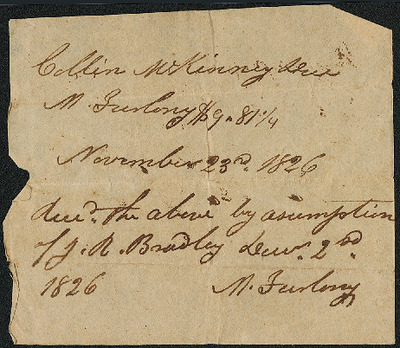 Collin McKinney Due
M. Furlong $9.81 1/4
November 23d. 1826
Recd. the above by asumption
of J. R. Bradley Decr. 2d
1826 M. Furlong